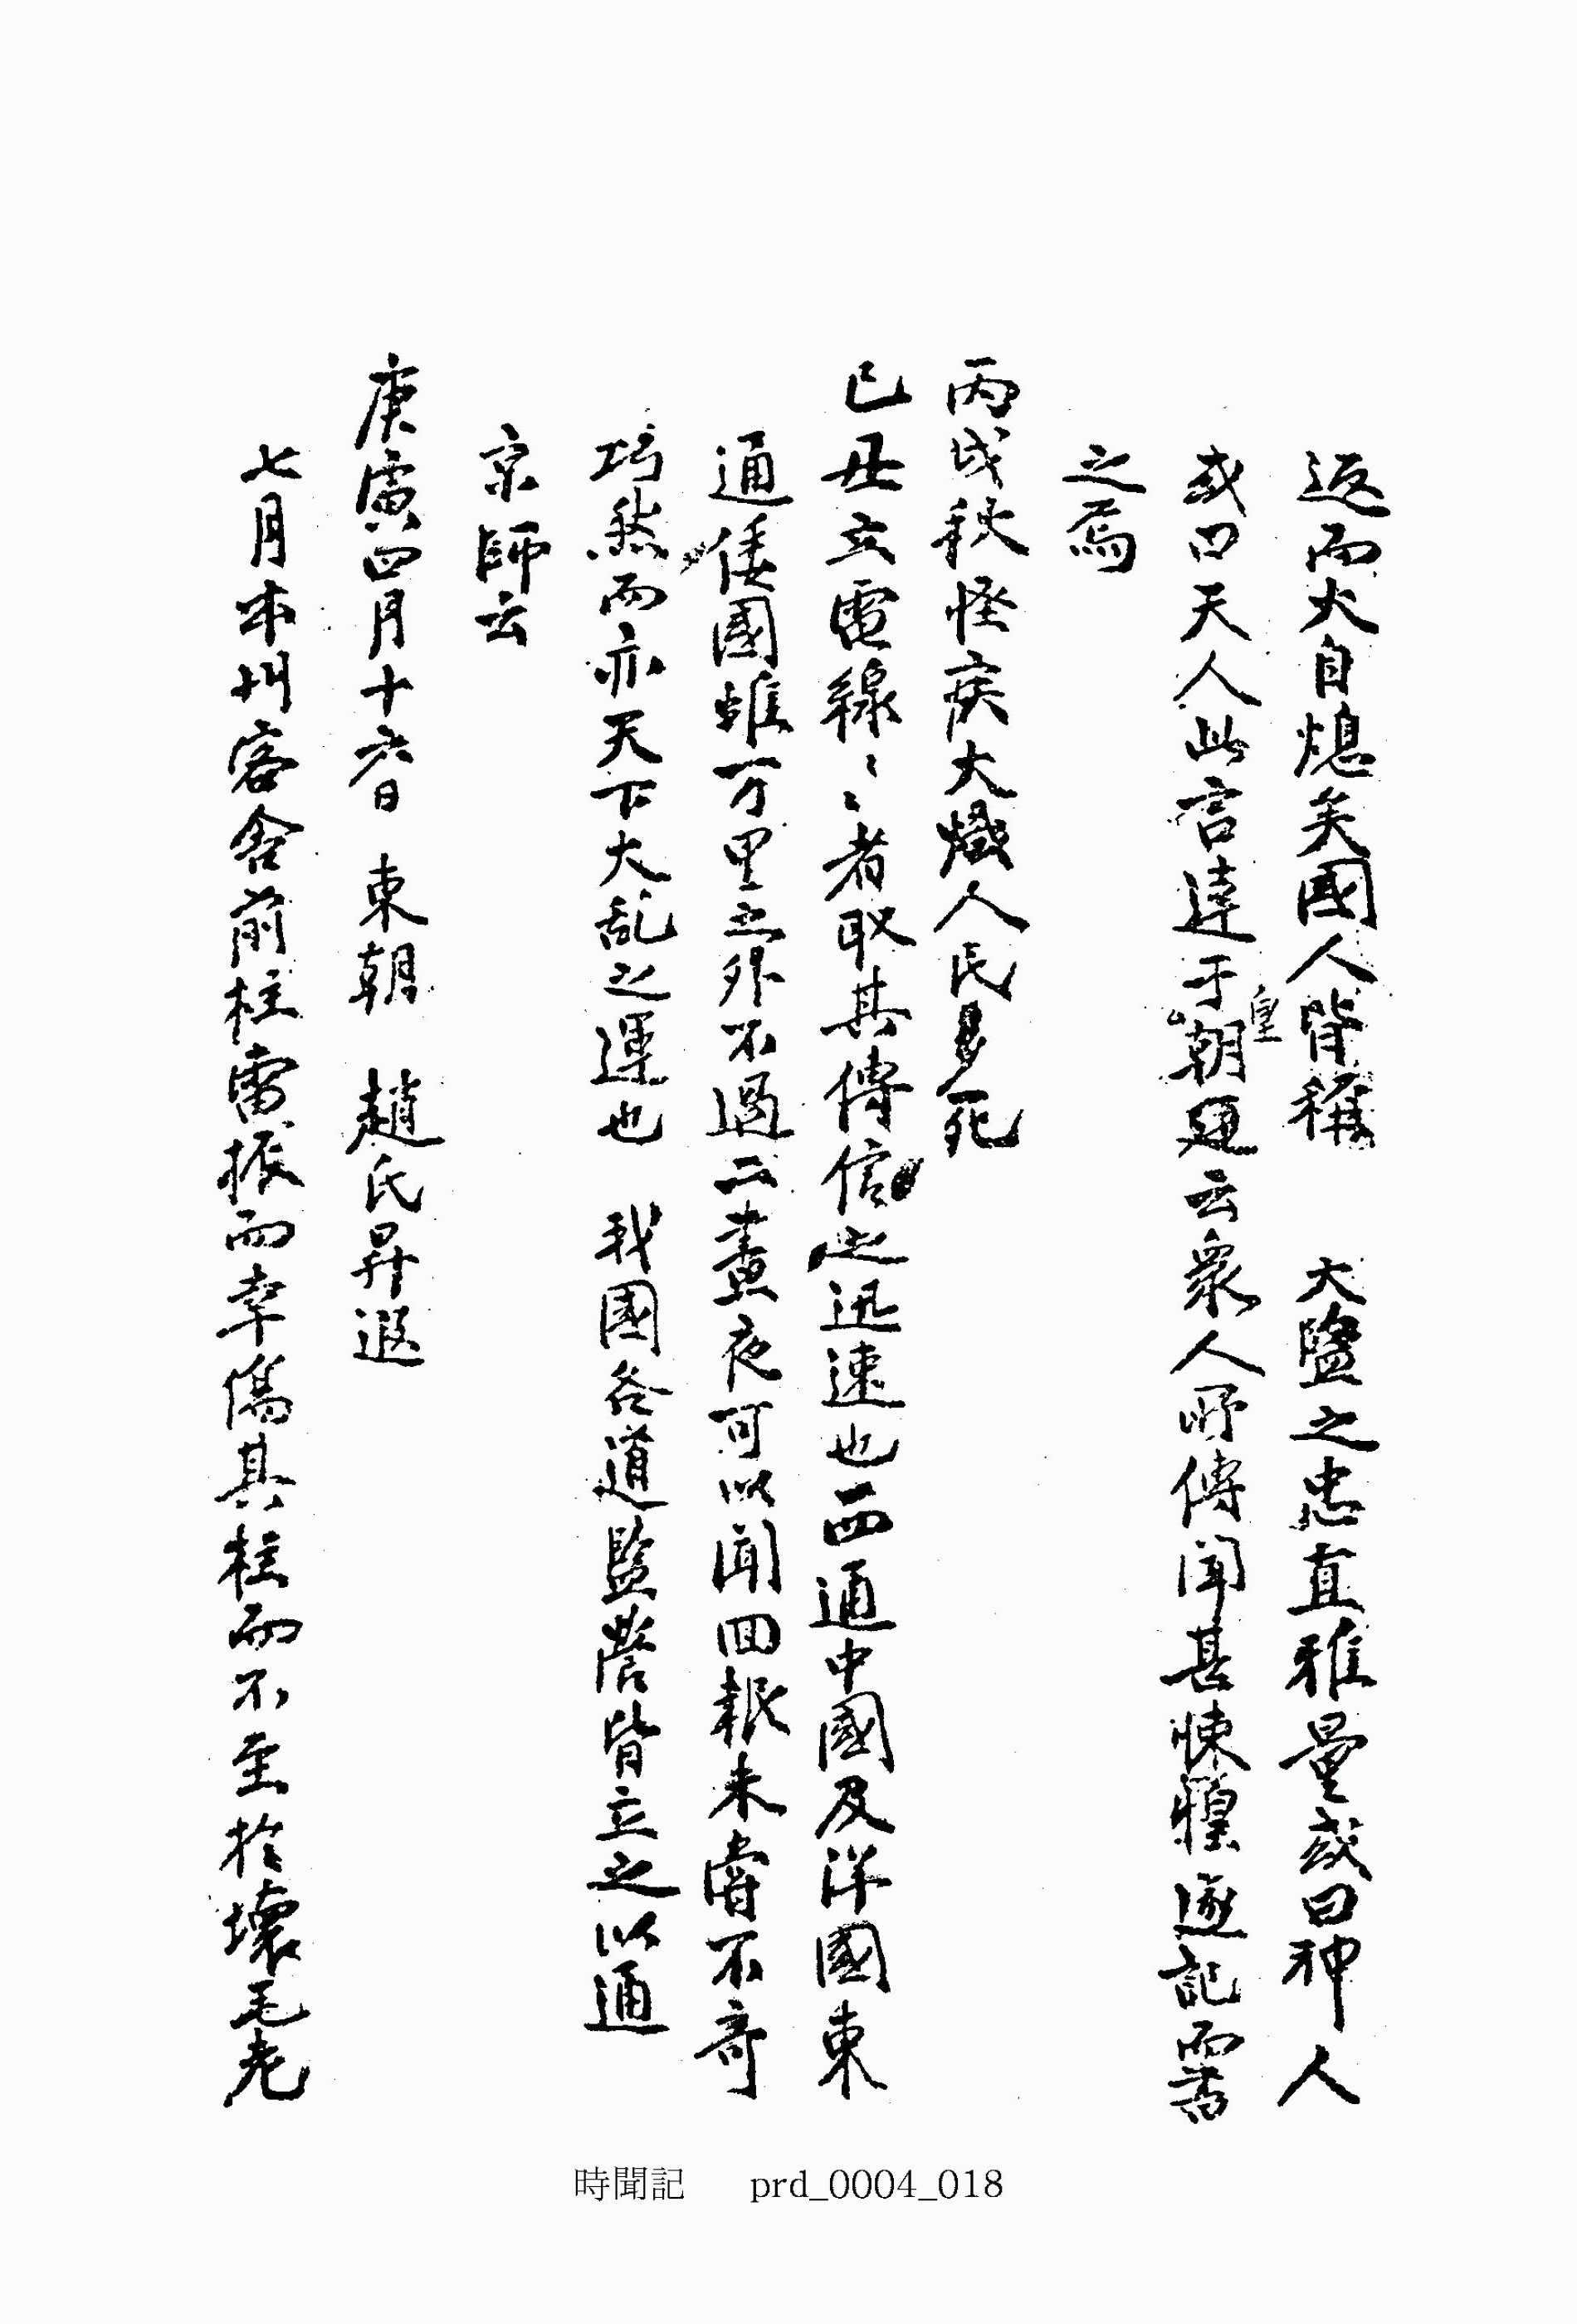 返而火自熄矣國人皆稱 大鹽之忠直雅量或曰神人
或曰天人此言達于朝廷云衆人所傳聞甚悚惶遂記書
皇
之焉
丙戌秋怪疾大熾人民多死
己丑立電線〻〻者取其傳信之迅速也西通中國及洋國東
通倭國雖万里之外不過二晝夜可以聞回報未嘗不奇
巧然而亦天下大乱之運也 我國各道監營皆立之以通
京師云
庚寅四月十六日 東朝 趙氏昇遐
七月本州客舍前柱雷振而幸傷其柱而不至於壞毛老
時聞記 prd_0004_018